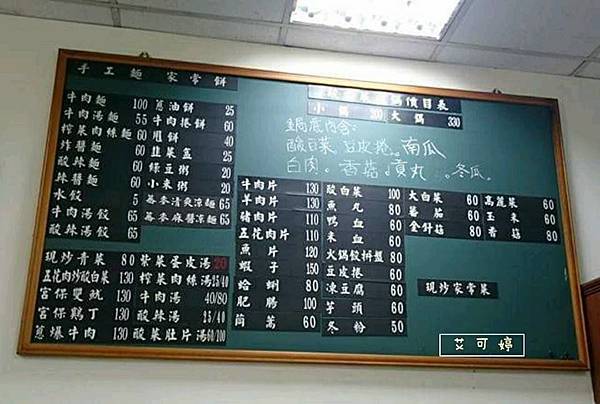 手工麵 家常餅
牛肉麵 100
牛肉湯麵 55
榨菜肉絲麵 60
炸醬麵 60
酸辣麵 60
麻醬麵 60
水餃 5
牛肉湯餃 65
酸辣湯餃 65
蔥油餅 25
牛肉捲餅 60
甩餅 40
韭菜盒 25
綠豆粥 20
小米粥 20
蕎麥清爽涼麵 65
蕎麥麻醬涼麵 65
現炒青菜 80
五花肉炒酸白菜 130
宮保雙魷 130
宮保雞丁 130
蔥爆牛肉 130
紫菜蛋皮湯 20
榨菜肉絲湯 25/40
牛肉湯 40/80
酸辣湯 25/40
酸菜肚片湯 60/100
鍋價目表
小鍋 200 大鍋 330
鍋底內含:
酸白菜、豆皮捲、南瓜
白肉。香菇。貢丸。冬瓜。
牛肉片 130
羊肉片 130
豬肉片 110
五花肉片 110
魚片 120
蝦子 150
蛤蜊 80
肥腸 100
茼蒿 60
酸白菜 100
魚丸 80
鴨血 60
米血 60
火鍋餃拼盤 80
豆皮捲 60
凍豆腐 60
芋頭 60
冬粉 50
大白菜 60
蕃茄 60
金針菇 60
高麗菜 60
玉米 60
香菇 60
現炒家常菜
艾可婷